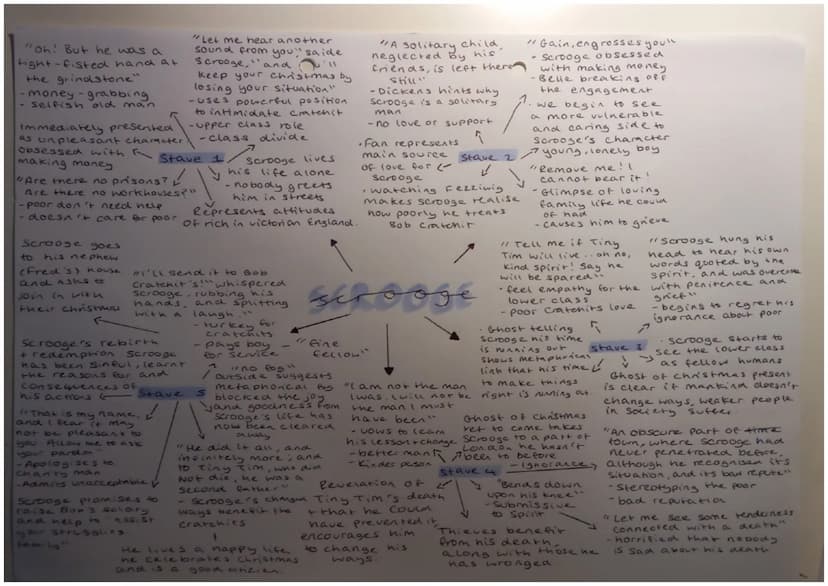 "Oh! But he was a
tight-fisted hand at
the grindstone"
- money-grabbing
- selfish old man
Immediately presented
as unpleasant character
obsessed with
making money
"Are there no prisons?
Are there no workhouses?"
- poor don't need help
- doesn't care for poor
"Let me hear another
sound from you" saide
Scrooge, "and you'll
keep your christmas by
losing your situation"
- uses powerful position
to intimidate cratchit
- upper class role
- class divide
Stave 1
Scrooge lives
his life alone
- nobody greets
him in streets
Represents attitudes
of rich in victorian England.
"A solitary child,
neglected by his
friends, is left there
still"
- Dickens hints why
Scrooge is a solitary
man
- no love or support
• Fan represents
main source
of love for
Scrooge
• watching Fezziwig
makes scrooge realise
how poorly he treats
Bob Cratchit
Stave 2
"Gain, engrosses you"
- scrooge obsessed
with making money
- Belle breaking off
the engagement
• we begin to see
a more vulnerable
and caring side to
scrooge's character
- young, lonely boy
"Remove me! I
cannot bear it!
- Glimpse of loving
family life he could
of had
- causes him to grieve
SCROOGE
Scrooge goes
to his nephew
(Fred's) house
and asks to
join in with
their christmas
"I'll send it to Bob
Cratchit's!" whispered
Scrooge, rubbing his
hands, and splitting
with a laugh."
- turkey for
cratchits
- pays boy
for service
- "Fine
fellow"
Scrooge's rebirth
+ redemption Scrooge
has been sinful, learnt
the reasons for and
consequences of
his actions
Stave 5
"no fog"
outside suggests
metaphorical
blocked the joy
and goodness from
Scrooge's life has
now been cleared
away
"That is my name,
and I fear it may
not be pleasant to
you. Allow me to ask
your pardon"
- Apologises to
charity man
- Admits unacceptable
Scrooge promises to
raise Bob's salary
and help to "assist
your struggling
family"
"He did it all, and
infinitely more; and
to Tiny Tim, who did
not die, he was a
second father"
- Scrooge's
ways benefit the
cratchits
He lives a happy life,
he celebrates christmas
and is a good
"I am not the man
I was. I will not be
the man I must
have been"
- vows to learn
his lesson + change
- better man
- kinder person
Revelation of
Tiny Tim's death
+ that he could
have prevented it
encourages him
to change his
ways.
Stave 4
Ghost of Christmas
yet to come takes
Scrooge to a part of
London, he hasn't
been to before
- ignorance
"Bends down
upon his knee"
- submissive
to spirit
Thieves benefit
from his death,
along with those he
has wronged
"An obscure part of
town, where scrooge had
never penetrated before,
although he recognised it's
situation, and its bad repute"
- Stereotyping the poor
- bad reputation
"Let me see some tenderness
connected with a death"
- horrified that nobody
is sad about his death
"Tell me if Tiny
Tim will live.. oh no,
kind spirit! Say he
will be spared"
- feel empathy for the
lower class
- poor Cratchits love
• Ghost telling
scrooge his time
is running out
shows metaphorical
link that his time
to make things
right is running out
Stave 3
"Scrooge hung his
head to hear his own
words quoted by the
spirit, and was overcome
with penitence and
grief"
- begins to regret his
ignorance about poor
• Scrooge starts to
see the lower class
as fellow humans
Ghost of christmas present
is clear if mankind doesn't
change ways, weaker people
in society suffer.